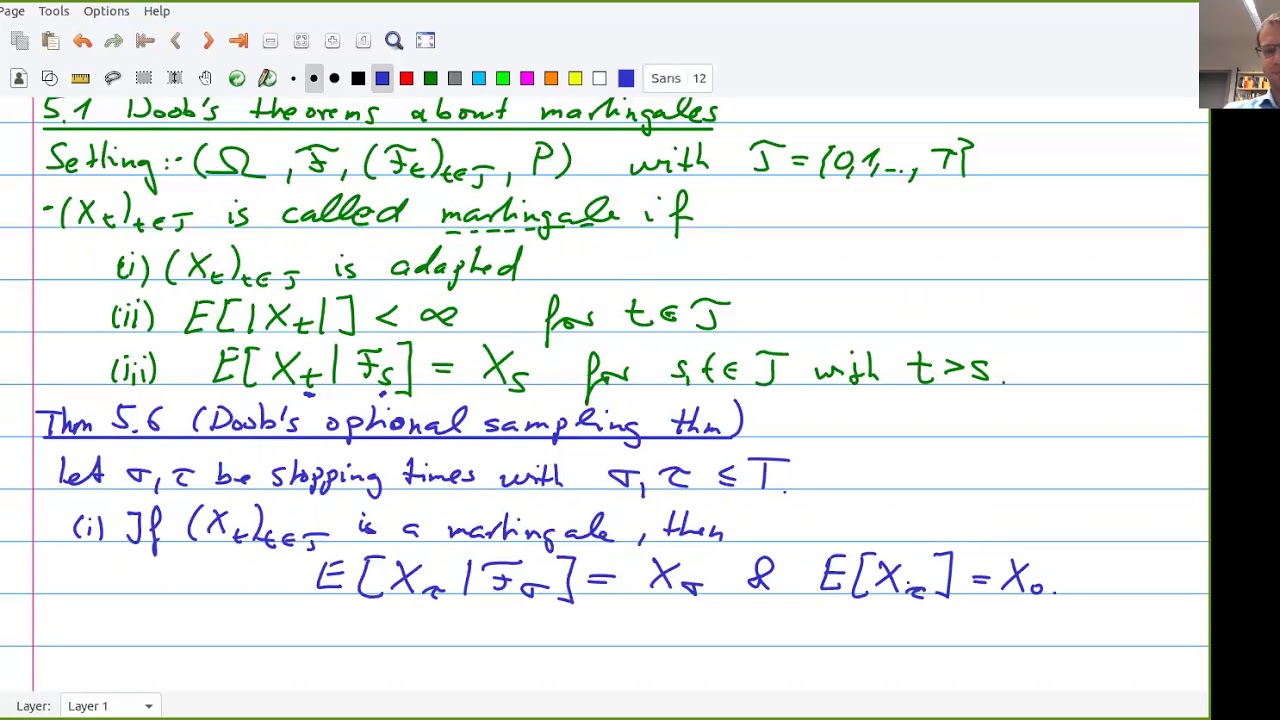 Page Tools Options Help
Sans 12
5.1 Doob's theorems about martingales
Setting: · (Ω, ℱ, (ℱ_t)_{t∈𝒯}, P) with 𝒯 = {0,1,..., T}
· (X_t)_{t∈𝒯} is called martingale if
(i) (X_t)_{t∈𝒯} is adapted
(ii) E[|X_t|] < ∞ for t ∈ 𝒯
(iii) E[X_t | ℱ_s] = X_s for s,t ∈ 𝒯 with t > s.
Thm 5.6 (Doob's optional sampling thm)
Let σ, τ be stopping times with σ, τ ≤ T.
(i) If (X_t)_{t∈𝒯} is a martingale, then
E[X_τ | ℱ_σ] = X_σ & E[X_τ] = X_0.
Layer: Layer 1